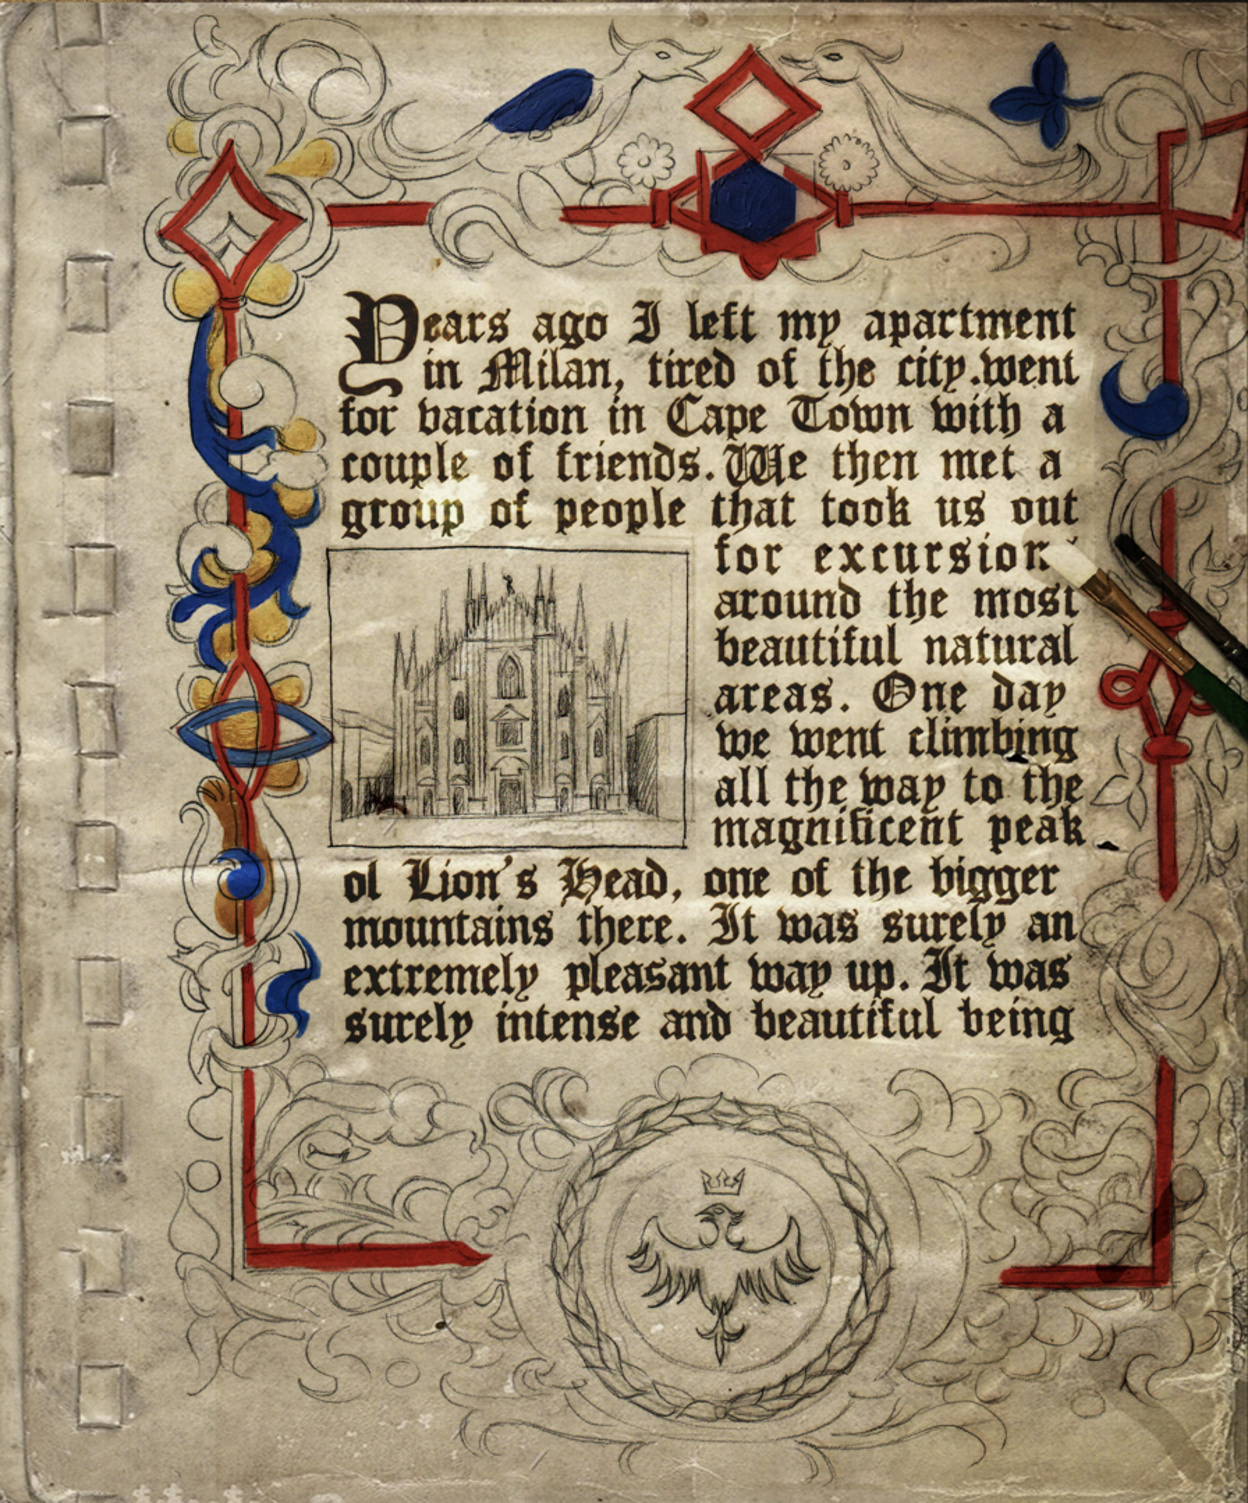 Years ago I left my apartment
in Milan, tired of the city.went
for vacation in Cape Town with a
couple of friends. We then met a
group of people that took us out
for excursion
around the most
beautiful natural
areas. One day
we went climbing
all the way to the
magnificent peak
ol Lion's Head, one of the bigger
mountains there. It was surely an
extremely pleasant way up. It was
surely intense and beautiful being